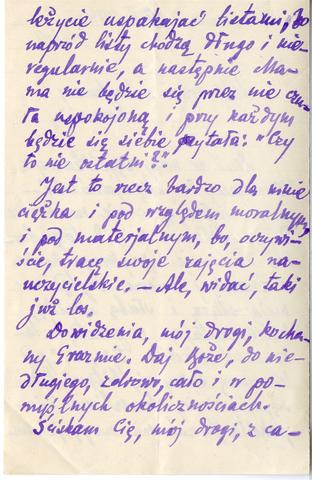 leżycie uspakajać listami, bo
naprzód listy chodzą długo i nie-
regularnie, a następnie Ma-
ma nie będzie się przez nie czu-
ła uspokojoną i przy każdym
będzie się siebie pytała: "Czy
to nie ostatni?".
Jest to rzecz bardzo dla mnie
ciężka i pod względem moralnym,
i pod materjalnym, bo, oczywi-
ście, tracę swoje zajęcia na-
uczycielskie. – Ale, widać, taki
już los.
Dowidzenia, mój drogi, kocha-
ny Erazmie. Daj Boże, do nie-
długiego, zdrowo, cało i w po-
myślnych okolicznościach.
Ściskam Cię, mój drogi, z ca-